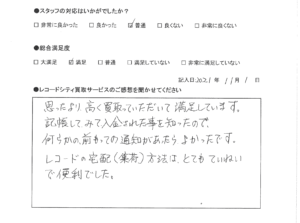 ●スタッフの対応はいかがでしたか?
□ 非常に良かった □ 良かった ☑ 普通 □ 良くない □ 非常に良くない
●総合満足度
□ 大満足 ☑ 満足 □ 普通 □ 満足していない □ 非常に満足していない
記入日:2021年 11月 1日
●レコードシティ買取サービスのご感想を聞かせてください
思ったより、高く買取っていただいて満足しています。
記帳してみて入金された事を知ったので、
何らかの前もっての通知があったらよかったです。
レコードの宅配(集荷)方法は、とてもていねい
で便利でした。